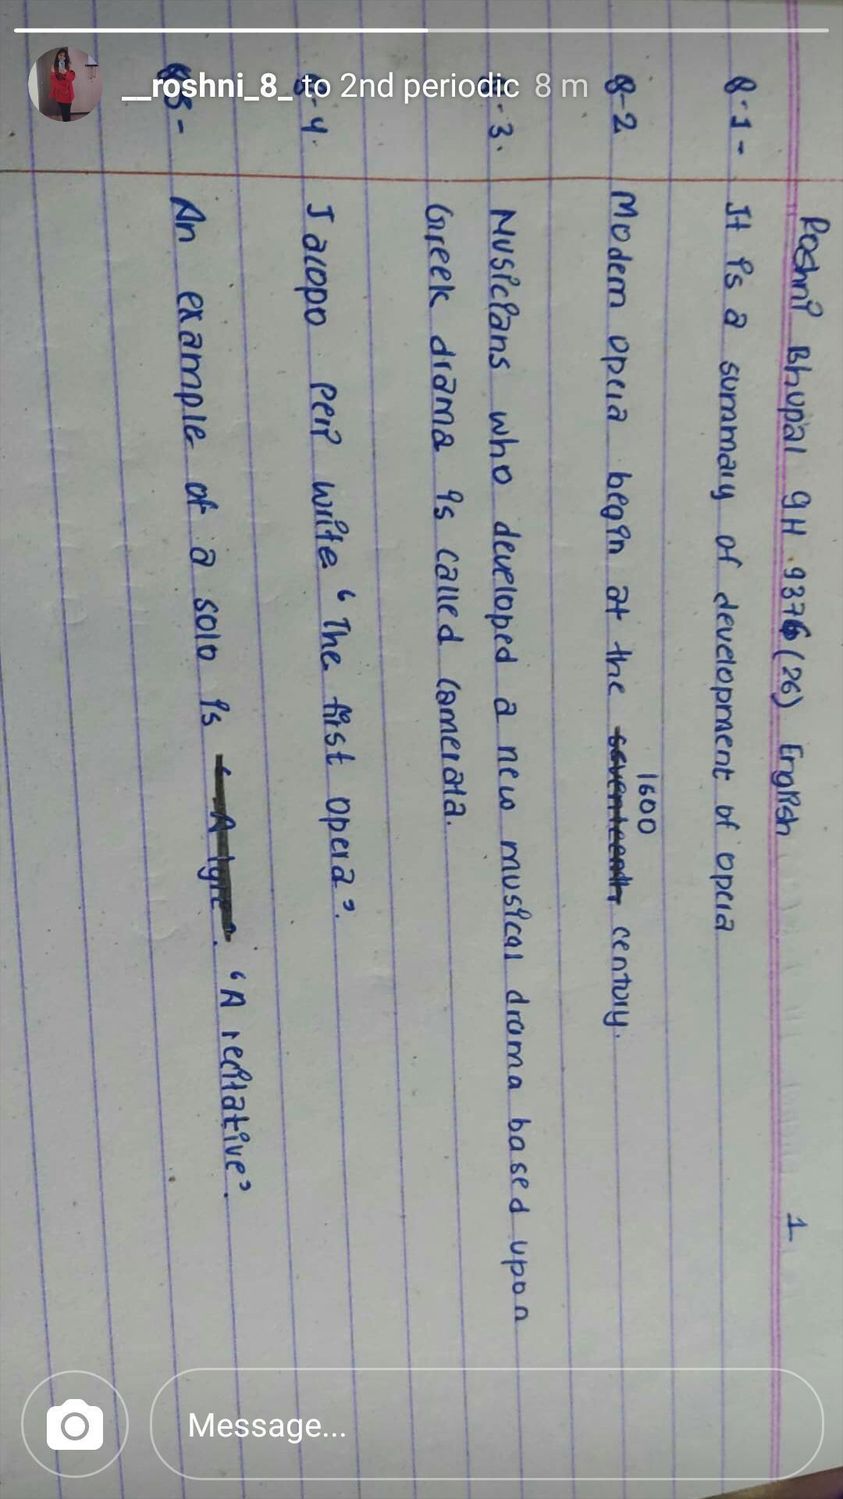 __roshni_8_ to 2nd periodic 8 m
Roshni Bhupal 9H 9376 (26) English 1
8.1- It is a summary of development of opera
8-2 Modern opera begin at the 1600 century.
8-3. Musicians who developed a new musical drama based upon
Greek drama is called camerata.
8-4. Jacopo peri write "The first opera".
8-5- An example of a solo is "A lyre". "A recitative".
Message...